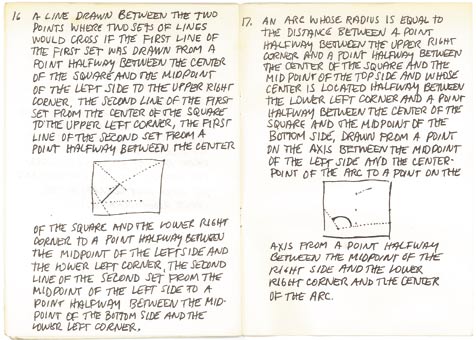 16 A LINE DRAWN BETWEEN THE TWO
POINTS WHERE TWO SETS OF LINES
WOULD CROSS IF THE FIRST LINE OF
THE FIRST SET WAS DRAWN FROM A
POINT HALFWAY BETWEEN THE CENTER
OF THE SQUARE AND THE MIDPOINT
OF THE LEFT SIDE TO THE UPPER RIGHT
CORNER, THE SECOND LINE OF THE FIRST
SET FROM THE CENTER OF THE SQUARE
TO THE UPPER LEFT CORNER, THE FIRST
LINE OF THE SECOND SET FROM A
POINT HALFWAY BETWEEN THE CENTER
OF THE SQUARE AND THE LOWER RIGHT
CORNER TO A POINT HALFWAY BETWEEN
THE MIDPOINT OF THE LEFT SIDE AND
THE LOWER LEFT CORNER, THE SECOND
LINE OF THE SECOND SET FROM THE
MIDPOINT OF THE LEFT SIDE TO A
POINT HALFWAY BETWEEN THE MID-
POINT OF THE BOTTOM SIDE AND THE
LOWER LEFT CORNER.
17. AN ARC WHOSE RADIUS IS EQUAL TO
THE DISTANCE BETWEEN A POINT
HALFWAY BETWEEN THE UPPER RIGHT
CORNER AND A POINT HALFWAY BETWEEN
THE CENTER OF THE SQUARE AND THE
MIDPOINT OF THE TOP SIDE AND WHOSE
CENTER IS LOCATED HALFWAY BETWEEN
THE LOWER LEFT CORNER AND A POINT
HALFWAY BETWEEN THE CENTER OF THE
SQUARE AND THE MIDPOINT OF THE
BOTTOM SIDE, DRAWN FROM A POINT
ON THE AXIS BETWEEN THE MIDPOINT
OF THE LEFT SIDE AND THE CENTER-
POINT OF THE ARC TO A POINT ON THE
AXIS FROM A POINT HALFWAY
BETWEEN THE MIDPOINT OF THE
RIGHT SIDE AND THE LOWER
RIGHT CORNER AND THE CENTER
OF THE ARC.